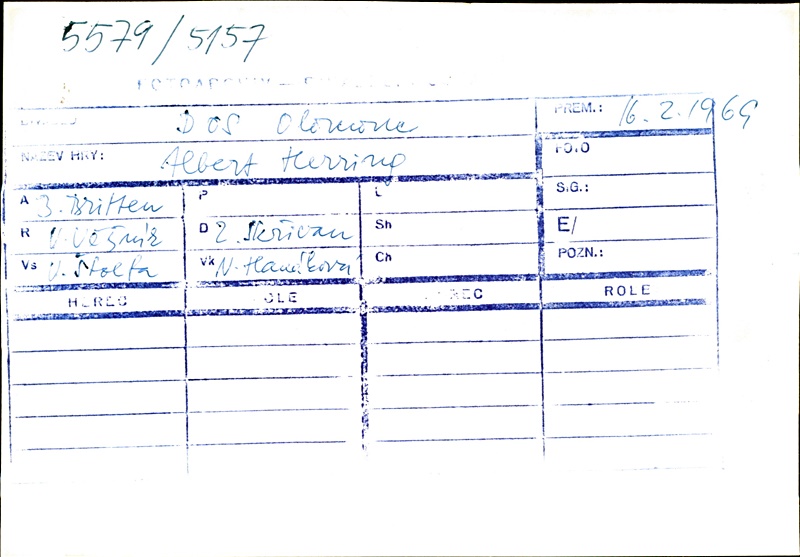 5579/5157
PREM.: 16. 2. 1969
DOS Olomouc
NÁZEV HRY: Albert Herring
FOTO
S.G.:
E/
POZN.:
A B. Britten P L
R V. Věžník D Z. Skřivan Sh
Vs V. Štolfa Vk N. Hanáková Ch
HEREC ROLE HEREC ROLE